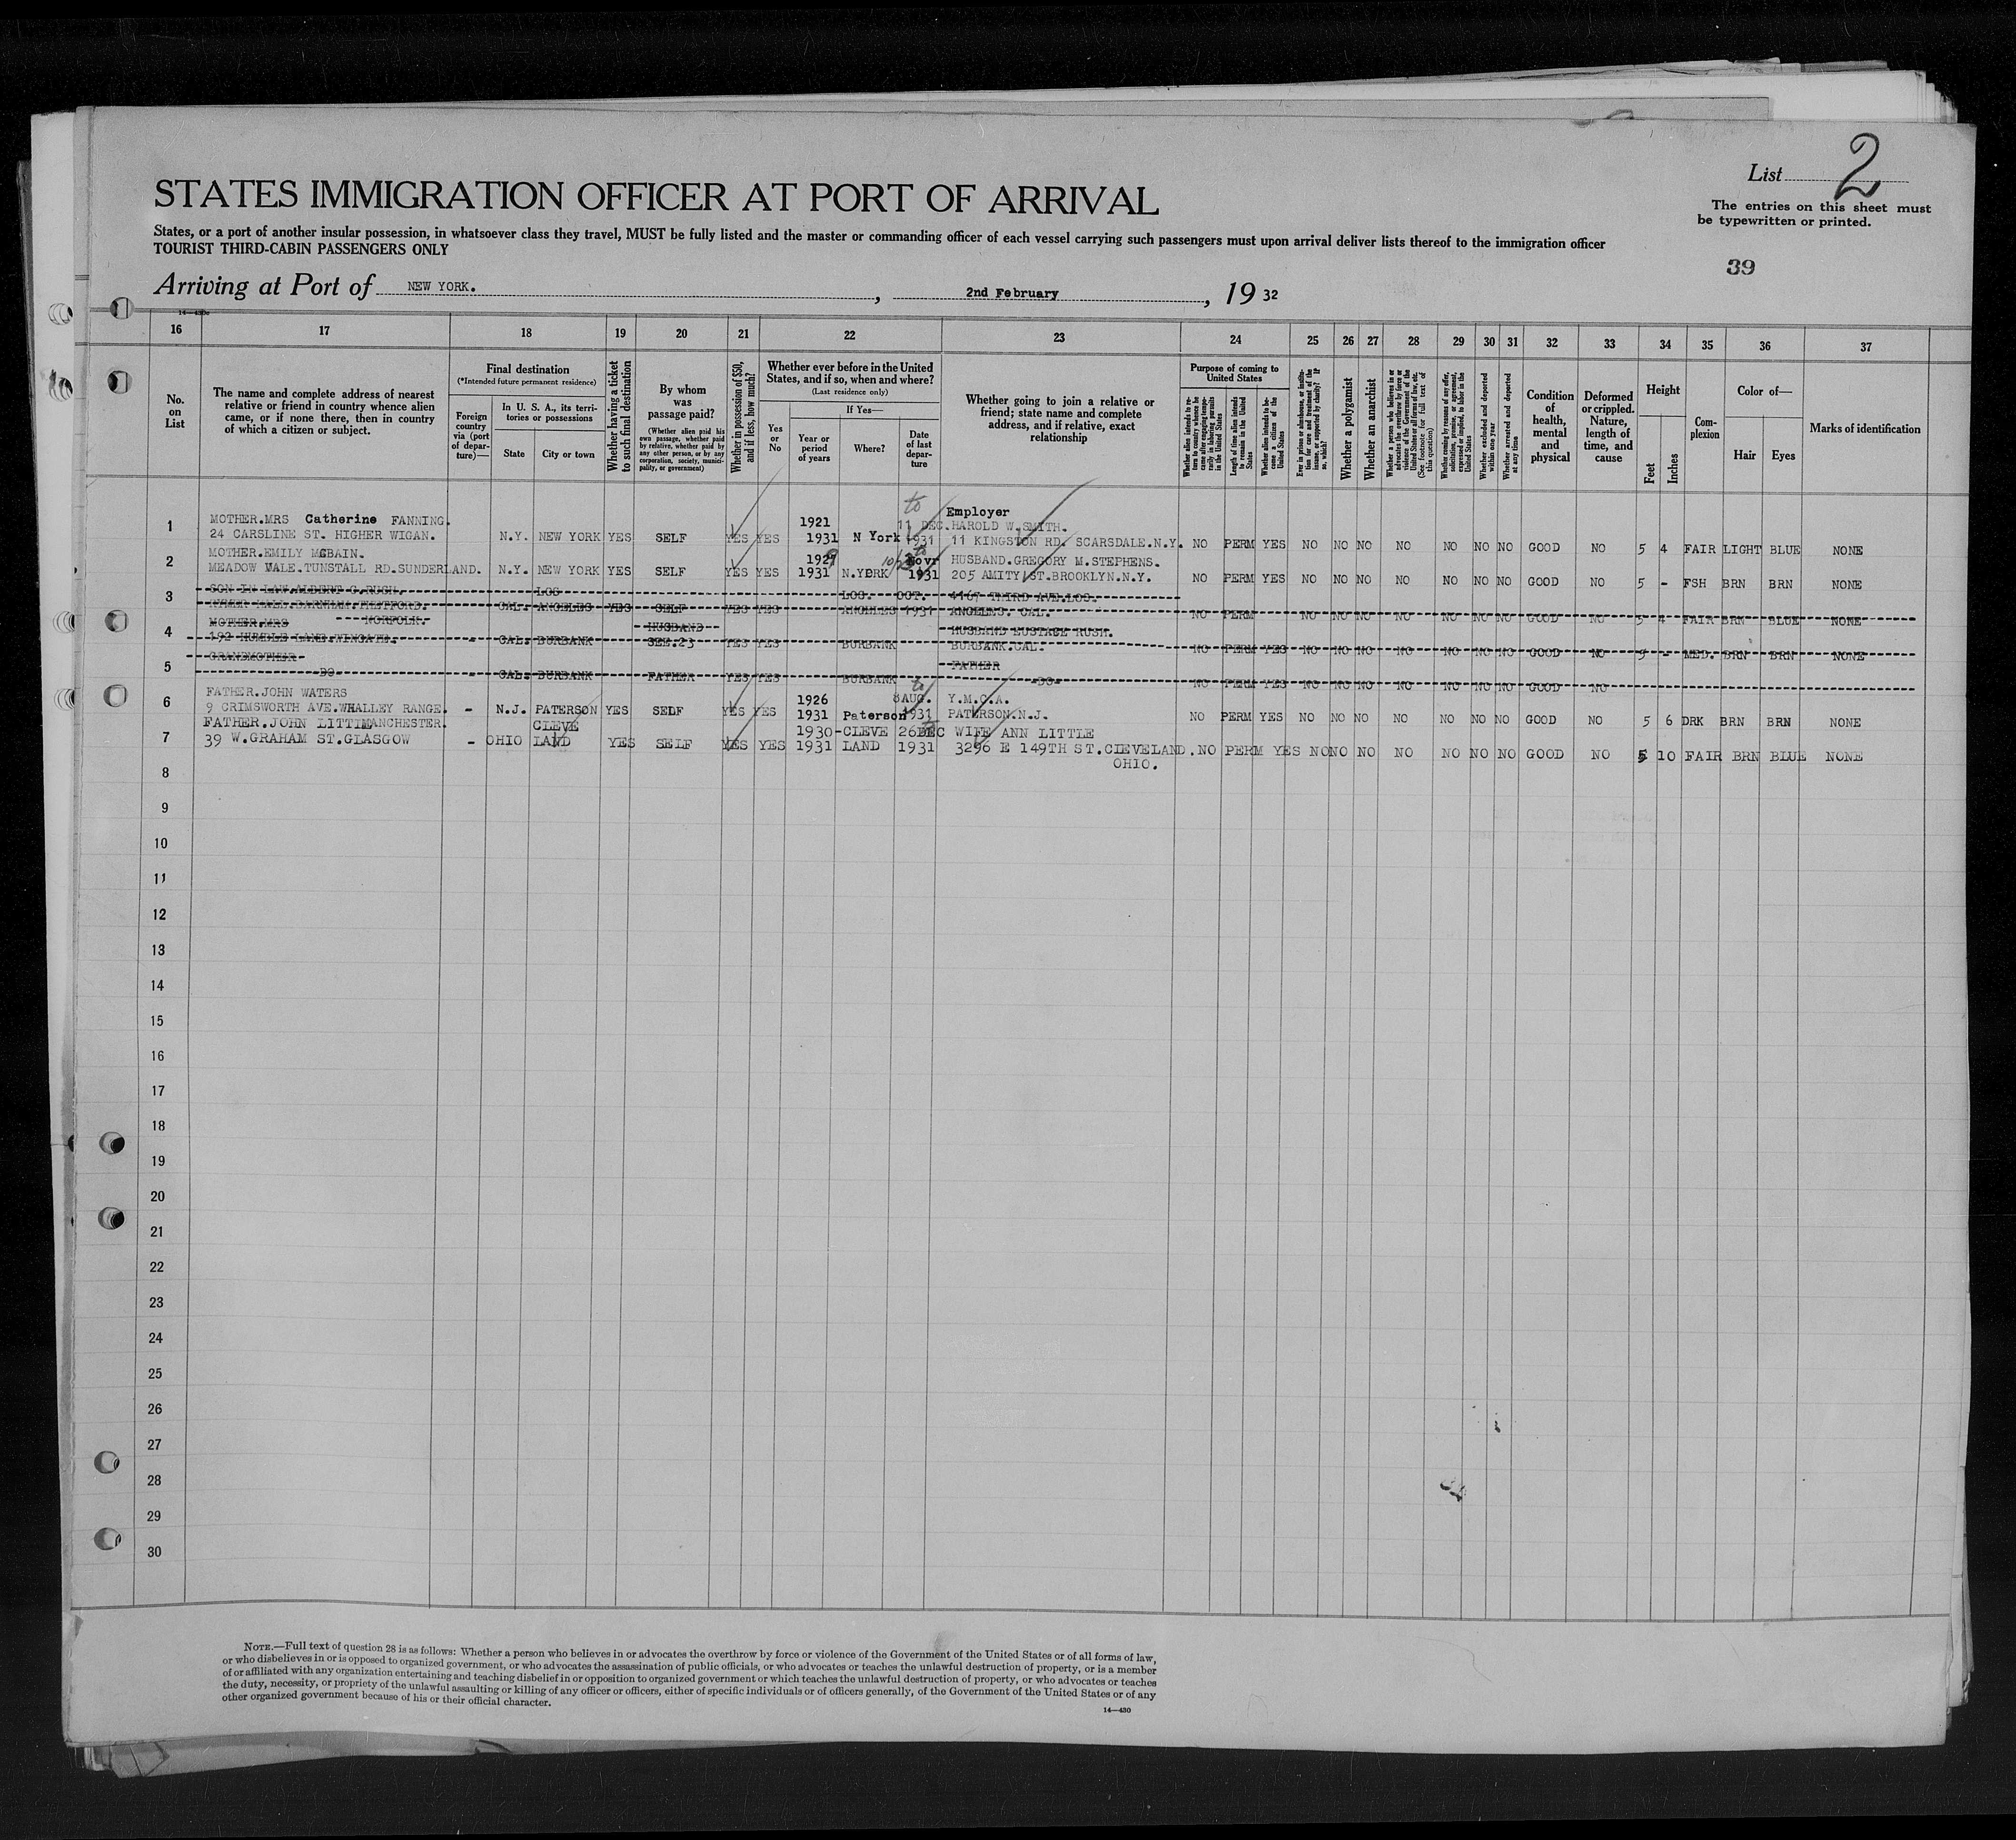 List 2
STATES IMMIGRATION OFFICER AT PORT OF ARRIVAL
The entries on this sheet must
be typewritten or printed.
States, or a port of another insular possession, in whatsoever class they travel, MUST be fully listed and the master or commanding officer of each vessel carrying such passengers must upon arrival deliver lists thereof to the immigration officer
TOURIST THIRD-CABIN PASSENGERS ONLY
39
Arriving at Port of NEW YORK. , 2nd February , 19 32
16 17 18 19 20 21 22 23 24 25 26 27 28 29 30 31 32 33 34 35 36 37
No. on List
The name and complete address of nearest
relative or friend in country whence alien
came, or if none there, then in country
of which a citizen or subject.
Final destination
(*Intended future permanent residence)
Foreign country via (port of departure)—
In U. S. A., its territories or possessions
State
City or town
Whether having a ticket to such final destination
By whom was passage paid?
(Whether alien paid his own passage, whether paid by relative, whether paid by any other person, or by any corporation, society, municipality, or government)
Whether in possession of $50, and if less, how much?
Whether ever before in the United States, and if so, when and where?
(Last residence only)
Yes or No
If Yes—
Year or period of years
Where?
Date of last departure
Whether going to join a relative or
friend; state name and complete
address, and if relative, exact
relationship
Purpose of coming to United States
Whether alien intends to return to country whence he came after engaging temporarily in laboring pursuits in the United States
Length of time alien intends to remain in the United States
Whether alien intends to become a citizen of the United States
Ever in prison or almshouse, or institution for care and treatment of the insane, or supported by charity? If so, which?
Whether a polygamist
Whether an anarchist
Whether a person who believes in or advocates the overthrow by force or violence of the Government of the United States or all forms of law, etc. (See footnote for full text of this question)
Whether coming by reason of any offer, solicitation, promise, or agreement, expressed or implied, to labor in the United States
Whether excluded and deported within one year
Whether arrested and deported at any time
Condition of health, mental and physical
Deformed or crippled. Nature, length of time, and cause
Height
Feet
Inches
Complexion
Color of—
Hair
Eyes
Marks of identification
1 MOTHER.MRS Catherine FANNING. 1921 to 11 DEC. Employer HAROLD W.SMITH.
24 CARSLINE ST. HIGHER WIGAN. N.Y. NEW YORK YES SELF YES YES 1931 N York 1931 11 KINGSTON RD. SCARSDALE.N.Y. NO PERM YES NO NO NO NO NO NO NO GOOD NO 5 4 FAIR LIGHT BLUE NONE
2 MOTHER.EMILY MCBAIN. 1929 Novr HUSBAND.GREGORY M.STEPHENS.
MEADOW VALE.TUNSTALL RD.SUNDERLAND. N.Y. NEW YORK YES SELF YES YES 1931 N.YORK 1931 205 AMITY ST.BROOKLYN.N.Y. NO PERM YES NO NO NO NO NO NO NO GOOD NO 5 - FSH BRN BRN NONE
3 SON IN LAW.ALBERT G.RUSH. LOS LOS. OCT. 4167 THIRD AVE.LOS.
HALL.BARNHAM.THETFORD. NORFOLK. CAL. ANGELES YES SELF YES YES ANGELES 1931 ANGELES. CAL. NO PERM NO NO NO NO NO NO NO GOOD NO 5 4 FAIR BRN BLUE NONE
4 MOTHER.MRS HUSBAND HUSBAND EUSTACE RUSH.
192 LANE.WINGATE. - CAL. BURBANK SEE.23 YES YES BURBANK BURBANK.CAL. NO PERM YES NO NO NO NO NO NO NO GOOD NO 5 - MED. BRN BRN NONE
5 GRANDMOTHER FATHER
DO - CAL. BURBANK FATHER YES YES BURBANK -DO- NO PERM YES NO NO NO NO NO NO NO GOOD NO
6 FATHER.JOHN WATERS 1926 8AUG. Y.M.C.A.
9 CRIMSWORTH AVE.WHALLEY RANGE. - N.J. PATERSON YES SELF YES YES 1931 Paterson 1931 PATERSON.N.J. NO PERM YES NO NO NO NO NO NO NO GOOD NO 5 6 DRK BRN BRN NONE
MANCHESTER.
7 FATHER.JOHN LITTLE CLEVE 1930- CLEVE 26DEC WIFE ANN LITTLE
39 W.GRAHAM ST.GLASGOW - OHIO LAND YES SELF YES YES 1931 LAND 1931 3296 E 149TH ST.CLEVELAND. NO PERM YES NO NO NO NO NO NO NO GOOD NO 5 10 FAIR BRN BLUE NONE
OHIO.
8
9
10
11
12
13
14
15
16
17
18
19
20
21
22
23
24
25
26
27
28
29
30
NOTE.—Full text of question 28 is as follows: Whether a person who believes in or advocates the overthrow by force or violence of the Government of the United States or of all forms of law,
or who disbelieves in or is opposed to organized government, or who advocates the assassination of public officials, or who advocates or teaches the unlawful destruction of property, or is a member
of or affiliated with any organization entertaining and teaching disbelief in or opposition to organized government or which teaches the unlawful destruction of property, or who advocates or teaches
the duty, necessity, or propriety of the unlawful assaulting or killing of any officer or officers, either of specific individuals or of officers generally, of the Government of the United States or of any
other organized government because of his or their official character.
14—430